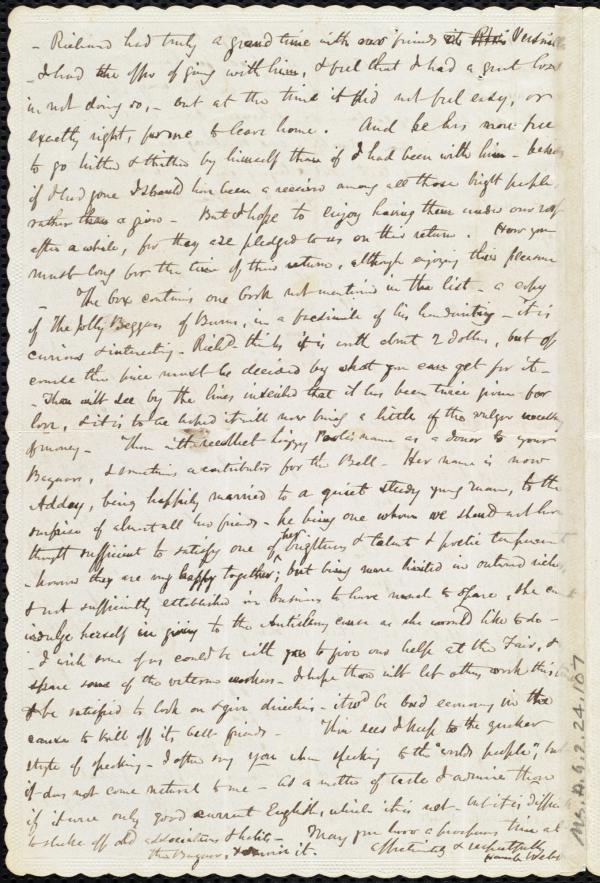 - Richard had truly a grand time with our friends at Versailles
- I had the offer of going with him, & feel that I had a great loss
in not doing so, - but at the time it did not feel easy, or
exactly right, for me to leave home. And he was more free
to go hither & thither by himself than if I had been with him - besides
if I had gone I should have been a receiver among all those bright people,
rather than a giver - But I hope to enjoy having them under our roof
after a while, for they are pledged to us on their return. How you
must long for the time of their return, although enjoying their pleasure
- The box contains one book not mentioned in the list - a copy
of The Jolly Beggars of Burns, in a facsimile of his handwriting - it is
curious & interesting - Richd thinks it is worth about 2 dollars, but of
course the price must be decided by what you can get for it -
- Thou wilt see by the lines inserted that it has been twice given for
love, & it is to be hoped it will now bring a little of the vulgar necessity
of money - Thou wilt recollect Lizzy name as a donor to your
Bazaars, & sometimes a contributor for the Bell - Her name is now
Addey, being happily married to a quiet steady young man, to the
surprise of almost all her friends - he being one whom we should not have
thought sufficient to satisfy one of her brightness & talent & poetic temperament
- however they are very happy together, but being more limited in outward riches,
& not sufficiently established in business to have much to spare, she can't
indulge herself in giving to the Antislavery cause as she would like to do -
- I wish some of us could be with you to give our help at the Fair, &
spare some of the veteran workers - I hope thou wilt let others work this time
& be satisfied to look on & give directions - it wd be bad economy in the
cause to kill off its best friends - Thou sees I keep to the quaker
style of speaking - I often say you when speaking to the "world's people", but
it does not come natural to me - as a matter of taste I admire thou
if it were only good current English, which it is not - but it is difficult
to shake off old associations & habits - May you have a prosperous time at
the Bazaar, & it. affectionately & respectfully
Hannah Webb
Ms.A.9.2.24.107